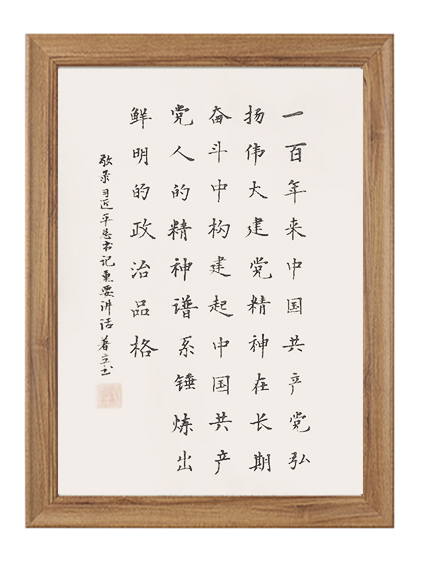 一百年来中国共产党弘
扬伟大建党精神在长期
奋斗中构建起中国共产
党人的精神谱系锤炼出
鲜明的政治品格
录习近平总书记重要讲话